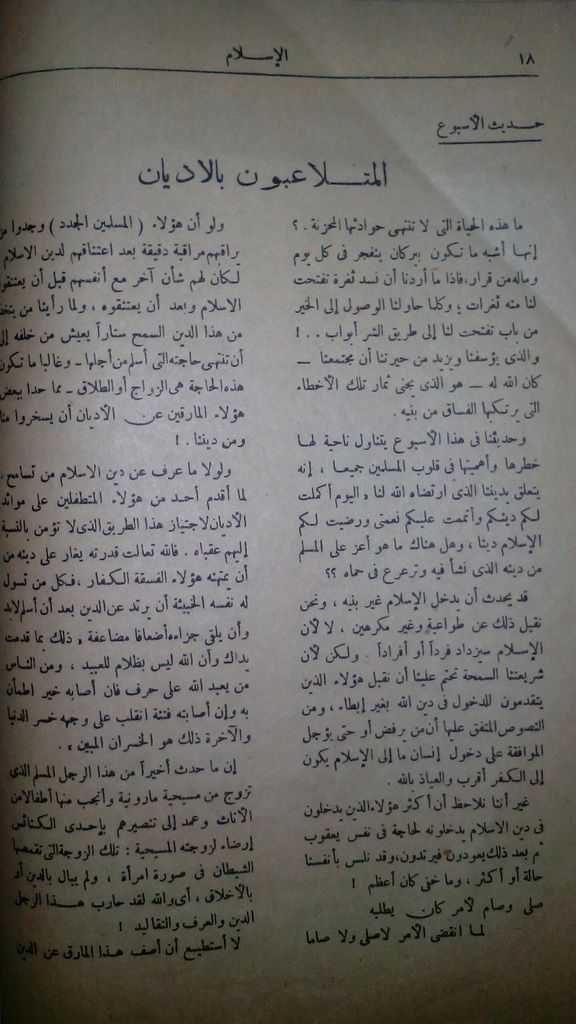 ١٨
الإسلام
حديث الأسبوع
المتلاعبون بالاديان
ما هذه الحياة التى لا تنتهى حوادثها المحزنة . ؟
إنها أشبه ما تكون ببركان ينفجر فى كل يوم
وماله من قرار، فاذا ما أردنا أن نسد ثغرة تفتحت
لنا منه ثغرات ؛ وكلما حاولنا الوصول إلى الخير
من باب تفتحت لنا إلى طريق الشر أبواب . . !
والذى يؤسفنا ويزيد من حيرتنا أن مجتمعنا —
كان الله له — هو الذى يجنى ثمار تلك الأخطاء
التى يرتكبها الفساق من بنيه .
وحديثنا فى هذا الأسبوع يتناول ناحية لها
خطرها وأهميتها فى قلوب المسلمين جميعا ، إنه
يتعلق بديننا الذى ارتضاه الله لنا « اليوم أكملت
لكم دينكم وأتممت عليكم نعمتى ورضيت لكم
الإسلام دينا » وهل هناك ما هو أعز على المسلم
من دينه الذى نشأ فيه وترعرع فى حماه ؟؟
قد يحدث أن يدخل الإسلام غير بنيه ، ونحن
نقبل ذلك عن طواعية وغير مكرهين ، لا لأن
الإسلام سيزداد فرداً أو أفراداً . ولكن لأن
شريعتنا السمحة تحتم علينا أن نقبل هؤلاء الذين
يتقدمون للدخول فى دين الله بغير إبطاء ، ومن
النصوص المتفق عليها أن من يرفض أو حتى يؤجل
الموافقة على دخول إنسان ما إلى الإسلام يكون
إلى الكفر أقرب والعياذ بالله .
غير أننا نلاحظ أن أكثر هؤلاء الذين يدخلون
فى دين الاسلام يدخلونه لحاجة فى نفس يعقوب
ثم بعد ذلك يعودون فيرتدون، وقد نلمس بأنفسنا
حالة أو أكثر ، وما خفى كان أعظم !
صلى وصام لأمر كان يطلبه
لما انقضى الأمر لا صلى ولا صاما
ولو أن هؤلاء ( المسلمين الجدد ) وجدوا من
يراقبهم مراقبة دقيقة بعد اعتناقهم لدين الاسلام
لكان لهم شأن آخر مع أنفسهم قبل أن يعتنقوا
الاسلام وبعد أن يعتنقوه ، ولما رأينا من يتخذ
من هذا الدين السمح ستاراً يعيش من خلفه إلى
أن تنتهى حاجته التى أسلم من أجلها - وغالبا ما تكون
هذه الحاجة هى الزواج أو الطلاق - مما حدا ببعض
هؤلاء المارقين عن الأديان أن يسخروا منا
ومن ديننا . !
ولولا ما عرف عن دين الاسلام من تسامح ،
لما أقدم أحد من هؤلاء المتطفلين على موائد
الأديان لاجتياز هذا الطريق الذى لا تؤمن بالنسبة
إليهم عقباه . فالله تعالت قدرته يغار على دينه من
أن يمتهنه هؤلاء الفسقة الكفار ، فكل من تسول
له نفسه الخبيثة أن يرتد عن الدين بعد أن أسلم لابد
وأن يلقى جزاءه أضعافا مضاعفة « ذلك بما قدمت
يداك وأن الله ليس بظلام للعبيد ، ومن الناس
من يعبد الله على حرف فان أصابه خير اطمأن
به وإن أصابته فتنة انقلب على وجهه خسر الدنيا
والآخرة ذلك هو الخسران المبين » .
إن ما حدث أخيراً من هذا الرجل المسلم الذى
تزوج من مسيحية مارونية وأنجب منها أطفالا من
الأناث وعمد إلى تنصيرهم بإحدى الكنائس
إرضاء لزوجته المسيحية : تلك الزوجة التى تقمصها
الشيطان فى صورة امرأة ، ولم يبال بالدين أو
بالأخلاق ، أى والله لقد حارب هذا الرجل
الدين والعرف والتقاليد !
لا أستطيع أن أصف هذا المارق عن الدين